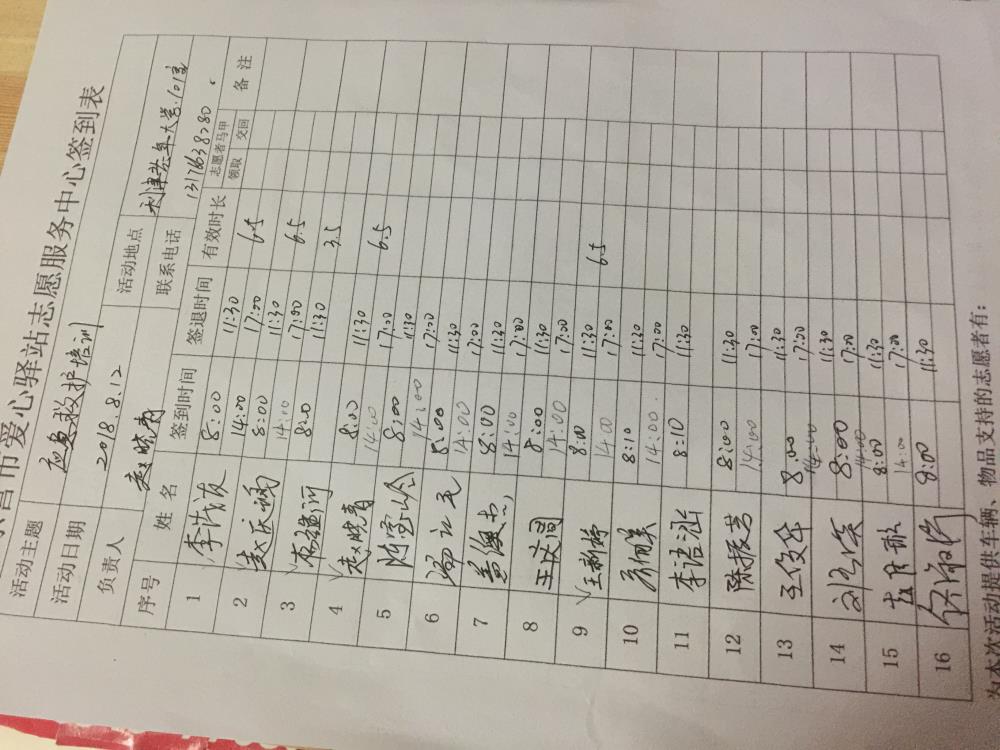 营市爱心驿站志愿服务中心签到表
活动主题 应急救护培训 活动地点 利津县车大营.101室
活动日期 2018.8.12 联系电话 13176638780
负责人 赵晓青
序号 姓名 签到时间 签退时间 有效时长 志愿者马甲 领取 交回 备注
1 李 8:00 11:30
14:00 17:00 6.5
2 赵 8:00 11:30
14:00 17:00 6.5
3 8:00 11:30 3.5
4 赵晓青 8:00 11:30
14:00 17:00 6.5
5 陈宝岭 8:00 11:30
14:00 17:00
6 8:00 11:30
14:00 17:00
7 8:00 11:30
14:00 17:00
8 王 8:00 11:30
14:00 17:00
9 王新婷 8:00 11:30
14:00 17:00 6.5
10 8:10 11:30
14:00 17:00
11 李语涵 8:10 11:30
12 陈 8:00 11:30
14:00 17:00
13 王俊华 8:00 11:30
14:00 17:00
14 刘 8:00 11:30
14:00 17:00
15 8:00 11:30
14:00 17:00
16 8:00 11:30
为本次活动提供车辆、物品支持的志愿者有: